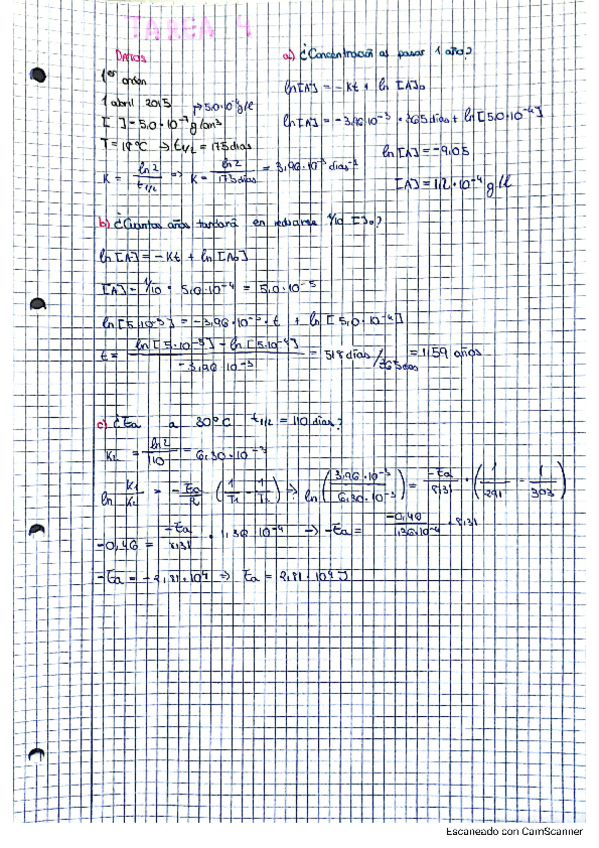 DATOS
1er orden
1 abril 2015 → 5,0·10⁻⁴ g/l
[ ] = 5,0·10⁻⁷ g/cm³
T = 18ºC → t1/2 = 175 días
K = ln2 / t1/2 => K = ln2 / 175 días = 3,96·10⁻³ días⁻¹
a) ¿Concentración al pasar 1 año?
ln[A] = -Kt + ln [A]₀
ln[A] = -3,96·10⁻³ · 365 días + ln[5,0·10⁻⁴]
ln[A] = -9,05
[A] = 1,2·10⁻⁴ g/l
b) ¿Cuantos años tardará en reducirse 1/10 [ ]₀?
ln[A] = -Kt + ln[A₀]
[A] = 1/10 · 5,0·10⁻⁴ = 5,0·10⁻⁵
ln[5·10⁻⁵] = -3,96·10⁻³ · t + ln [5,0·10⁻⁴]
t = ln[5·10⁻⁵] - ln[5·10⁻⁴] / -3,96·10⁻³ = 518 días / 365 días = 1,59 años
c) ¿Ea a 30ºC t1/2 = 110 días?
K₂ = ln2 / 110 = 6,30·10⁻³
ln K₁/K₂ = -Ea/R (1/T₁ - 1/T₂) => ln (3,96·10⁻³ / 6,30·10⁻³) = -Ea / 8,31 · (1/291 - 1/303)
-0,46 = -Ea / 8,31 · 1,36·10⁻⁴ → -Ea = -0,46 / 1,36·10⁻⁴ · 8,31
-Ea = -2,81·10⁴ => Ea = 2,81·10⁴ J
Escaneado con CamScanner